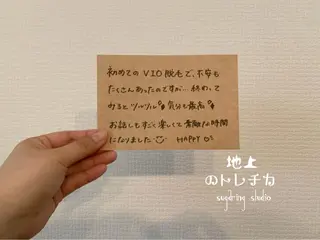 初めてのVIO脱毛で、不安も
たくさんあったのですが…終わって
みるとツルツル 気分も最高
お話しもすごく楽しくて素敵な時間
になりました HAPPY
地上
のトレチカ
sugaring studio